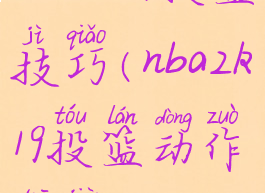 jì qiǎo
技巧(nba2k
tóu lán dòng zuò
19投篮动作